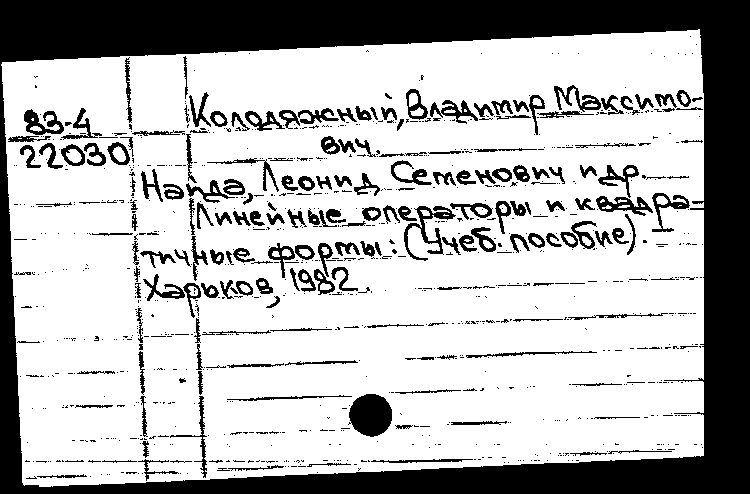 83-4
22030
Колодяжный, Владимир Максимо-
вич.
Найда, Леонид Семенович и др.
Линейные операторы и квадра-
тичные формы: (Учеб. пособие). –
Харьков, 1982.